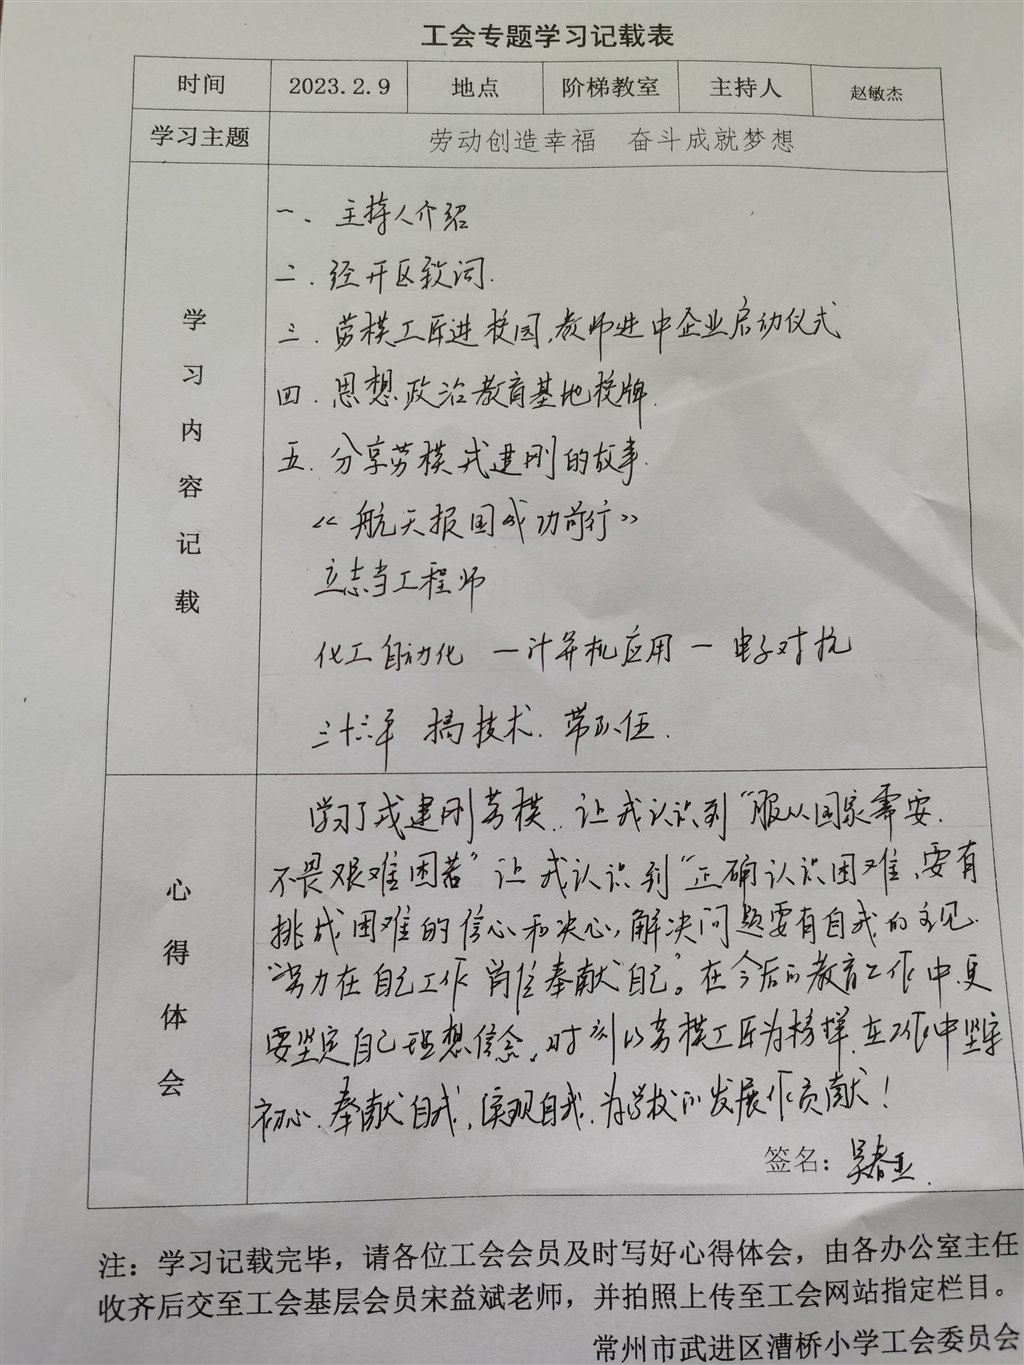 工会专题学习记载表
时间 2023.2.9 地点 阶梯教室 主持人 赵敏杰
学习主题 劳动创造幸福 奋斗成就梦想
学习内容记载
一、主持人介绍
二.经开区致词.
三.劳模工匠进校园,教师进中企业启动仪式
四.思想政治教育基地授牌.
五.分享劳模戎建刚的故事.
《航天报国成功前行》
立志当工程师
化工自动化 — 计算机应用 — 电子对抗
三十六年 搞技术.带队伍.
心得体会
学习了戎建刚劳模.让我认识到“服从国家需要.
不畏艰难困苦”让我认识到“正确认识困难,要有
挑战困难的信心和决心,解决问题要有自我的主见.
“努力在自己工作岗位奉献自己”。在今后的教育工作中.更
要坚定自己理想信念.时刻以劳模工匠为榜样.在工作中坚守
初心.奉献自我,实现自我.为学校的发展作贡献!
签名:吴春亚.
注:学习记载完毕,请各位工会会员及时写好心得体会,由各办公室主任
收齐后交至工会基层会员宋益斌老师,并拍照上传至工会网站指定栏目。
常州市武进区漕桥小学工会委员会